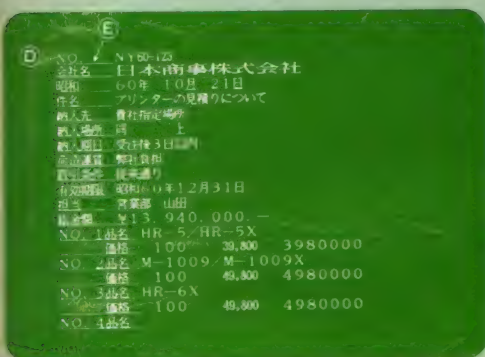 E
D
NO. NY60-123
会社名 日本商事株式会社
昭和 60年 10月 21日
件名 プリンターの見積りについて
納入先 貴社指定場所
納入場所 同 上
納入期日 受注後3日以内
運賃 弊社負担
取引条件 従来通り
有効期限 昭和60年12月31日
担当 営業部 山田
総金額 ¥13.940.000.―
NO. 1品名 HR-5/HR-5X
価格 100 39,800 3980000
NO. 2品名 M-1009/M-1009X
価格 100 49,800 4980000
NO. 3品名 HR-6X
価格 100 49,800 4980000
NO. 4品名